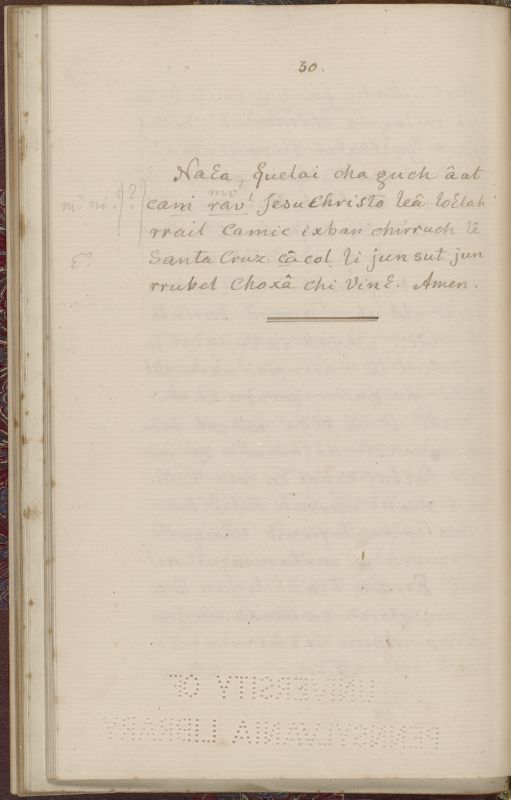 30.
Naƹa, quelai cha guch âat
mo
m? ni? ? cani rav Jesu Christo leâ loƹlah
rrail Camic ixban chirruch lê
Santa Cruz câcol li jun sut jun
rrubel Choxâ chi Vinƹ. Amen.
UNIVERSITY OF
PENNSYLVANIA LIBRARY